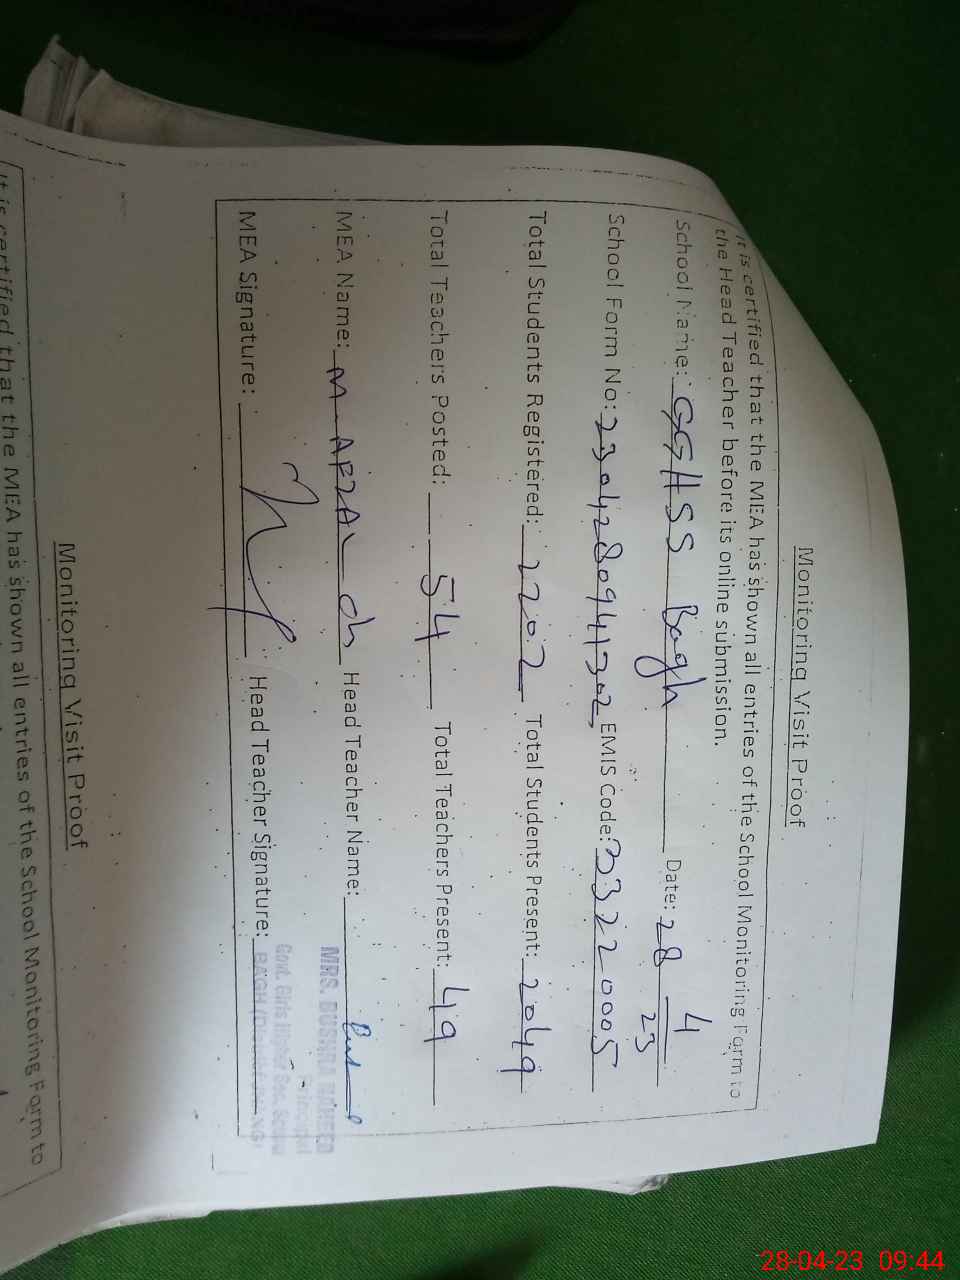 Monitoring Visit Proof
It is certified that the MEA has shown all entries of the School Monitoring Form to
the Head Teacher before its online submission.
School Name: GGHSS Bagh Date: 28/4/23
School Form No: 2304280941302, EMIS Code: 33220005
Total Students Registered: 2202 Total Students Present: 2049
Total Teachers Posted: 54 Total Teachers Present: 49
MEA Name: M. AFZAL Ch Head Teacher Name:
MRS. BUSHRA
Principal
Govt. Girls Higher Sec. School
MEA Signature: Head Teacher Signature:
BAGH
Monitoring Visit Proof
It is certified that the MEA has shown all entries of the School Monitoring Form to
28-04-23 09:44